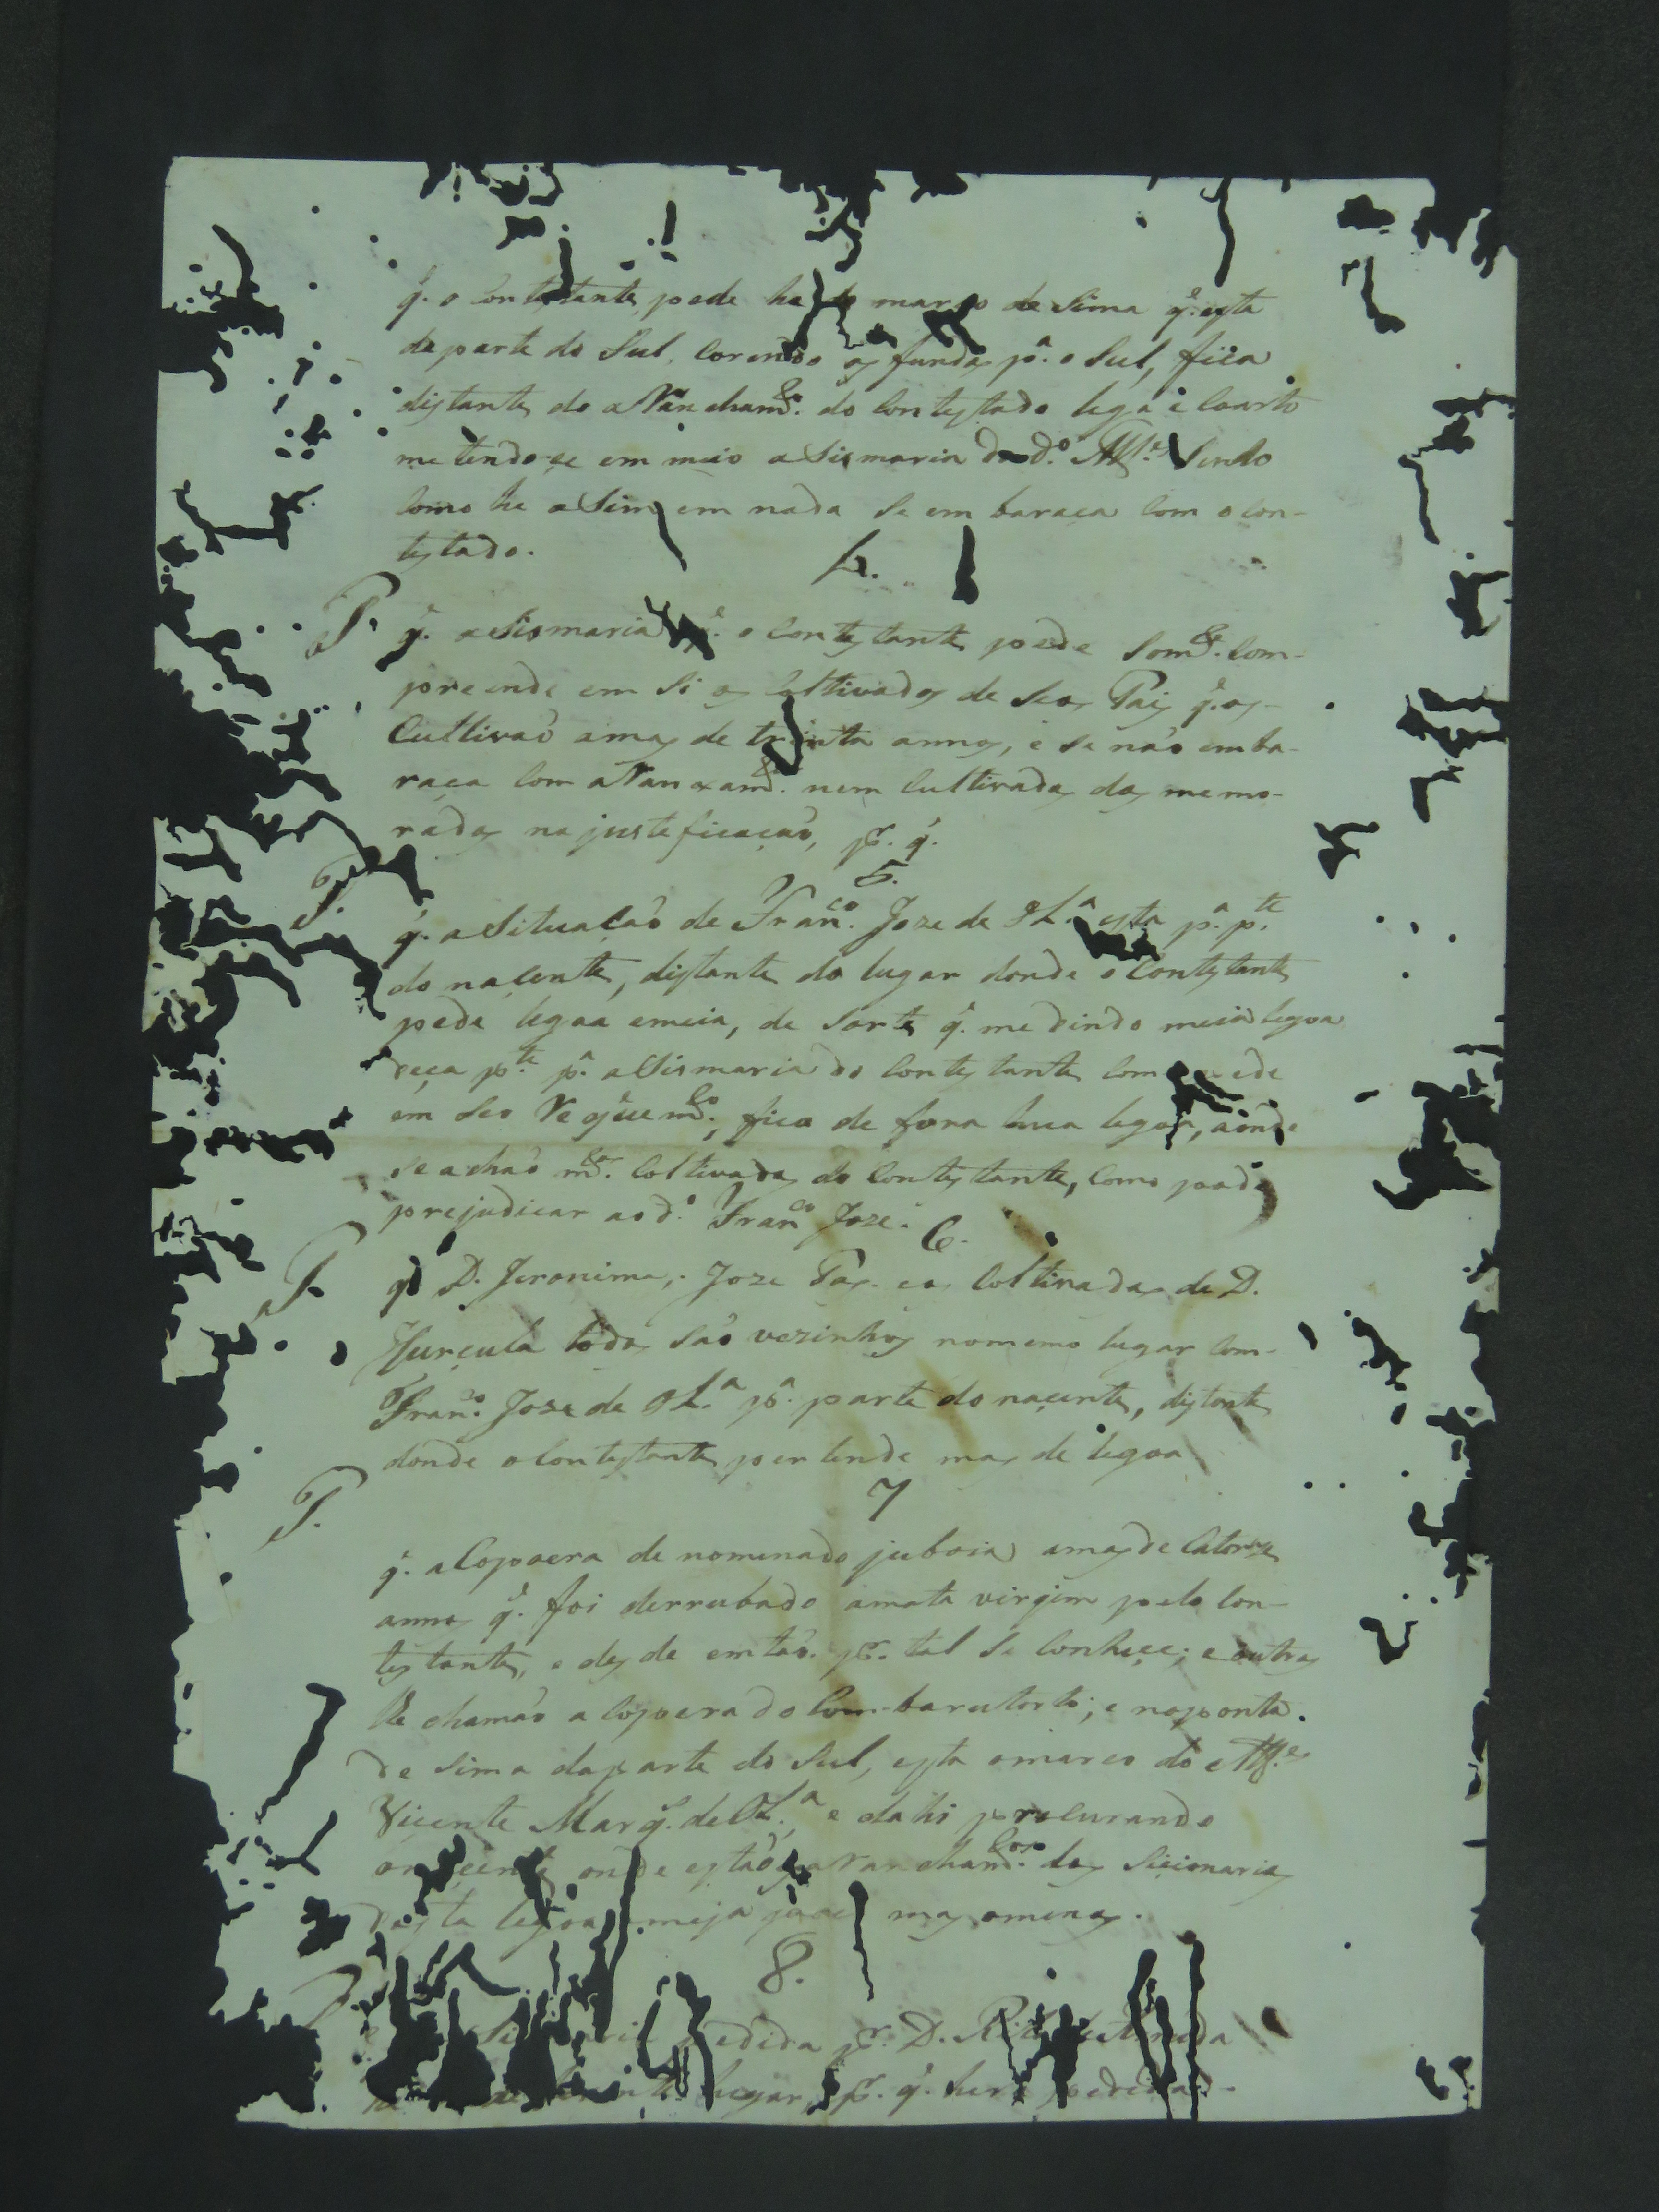 q̃. o Contestante pede he do marco de sima q̃. esta
da parte do Sul, Corendo os fundos pª. o Sul, fica
distante do aRanchamᵗᵒ. do Contestado legoa e Coarto
metendo-se em meio a Sismaria do dº. Alfˢ. Sendo
Como he aSim em nada se embaraça Com o con-
testado.
4.
P. q̃. a Sismaria q̃. o Contestante pede Somᵗᵉ. Com-
preende em Si os Coltivados de Seos Pais q̃. os
Cultivaõ amais de trinta annos, e se não emba-
raça Com aRanxamᵗᵒ. nem Cultivados dos memo-
rados na justeficação, pʳ. q̃.
5.
P. q̃. a Situação de Franᶜᵒ. Joze de Olª. esta pª. pᵗᵉ.
do naçente, distante do lugar donde o Contestante
pede legoa emeia, de Sorte q̃. medindo meia legoa
deça pᵗᵉ. pª. a Sismaria do Contestante Como pede
em Seo Requemᵗᵒ., fica de fora hua legoa, aonde
se achaõ mᵗᵒˢ. Coltivados do Contestante, Como pode
prejudicar ao dº. Franᶜᵒ Joze.
6.
P. q̃ D. Jeronima, Joze Paz. e os Coltivados de D.
Hurçula todos Saõ vezinhos nomemo lugar Com
Franᶜᵒ. Joze de Olª. pª. parte do naçente, distante
donde o Contestante pertende mais de legoa
7
P.
q̃. a Copoera denominado juboia amais de Catorze
annos q̃. foi derrubado amata virgem pelo Con-
testante, e desde emtaõ. pʳ. tal se Conheçe; e outros
lhe chamaõ a Copoera do Combarutorto; e naponta
de Sima daparte do Sul, esta omarco do Alfˢ.
Viçente Marq̃. de Olª., e dahi procurando
onaçente onde estaõ aranchamᵗᵒˢ. dos Siçionarios
dista legoa emeja pouco mas omenos.
8.
P. pedida pʳ. D. Rita
lugar, pʳ. q̃. hera pedida